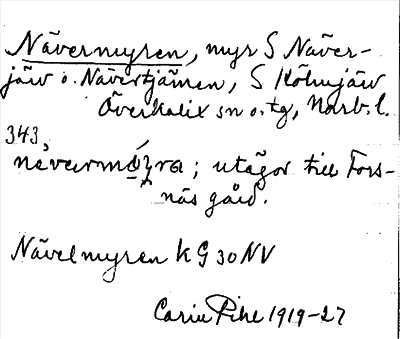 Nävermyren, myr S Näver-
järv o. Nävertjärnen, S Kölmjärv
Överkalix sn o. tg, Norb. l.
343,
; utägor till Fors-
näs gård.
Nävelmyren KG 30 NV
Carin Pihl 1919-27